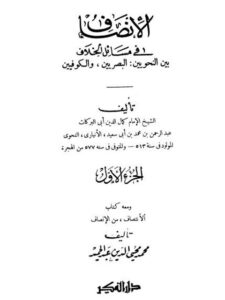 الإنصاف
في مسائل الخلاف
بين النحويين: البصريين، والكوفيين
تأليف
الشيخ الإمام كمال الدين أبي البركات
عبد الرحمن بن محمد بن أبي سعيد، الأنباري، النحوي
المولود في سنة ٥١٣ — والمتوفى في سنة ٥٧٧ من الهجرة
الجزء الأول
ومعه كتاب
الانتصاف، من الإنصاف
تأليف
محمد محيي الدين عبد الحميد
دار الفكر